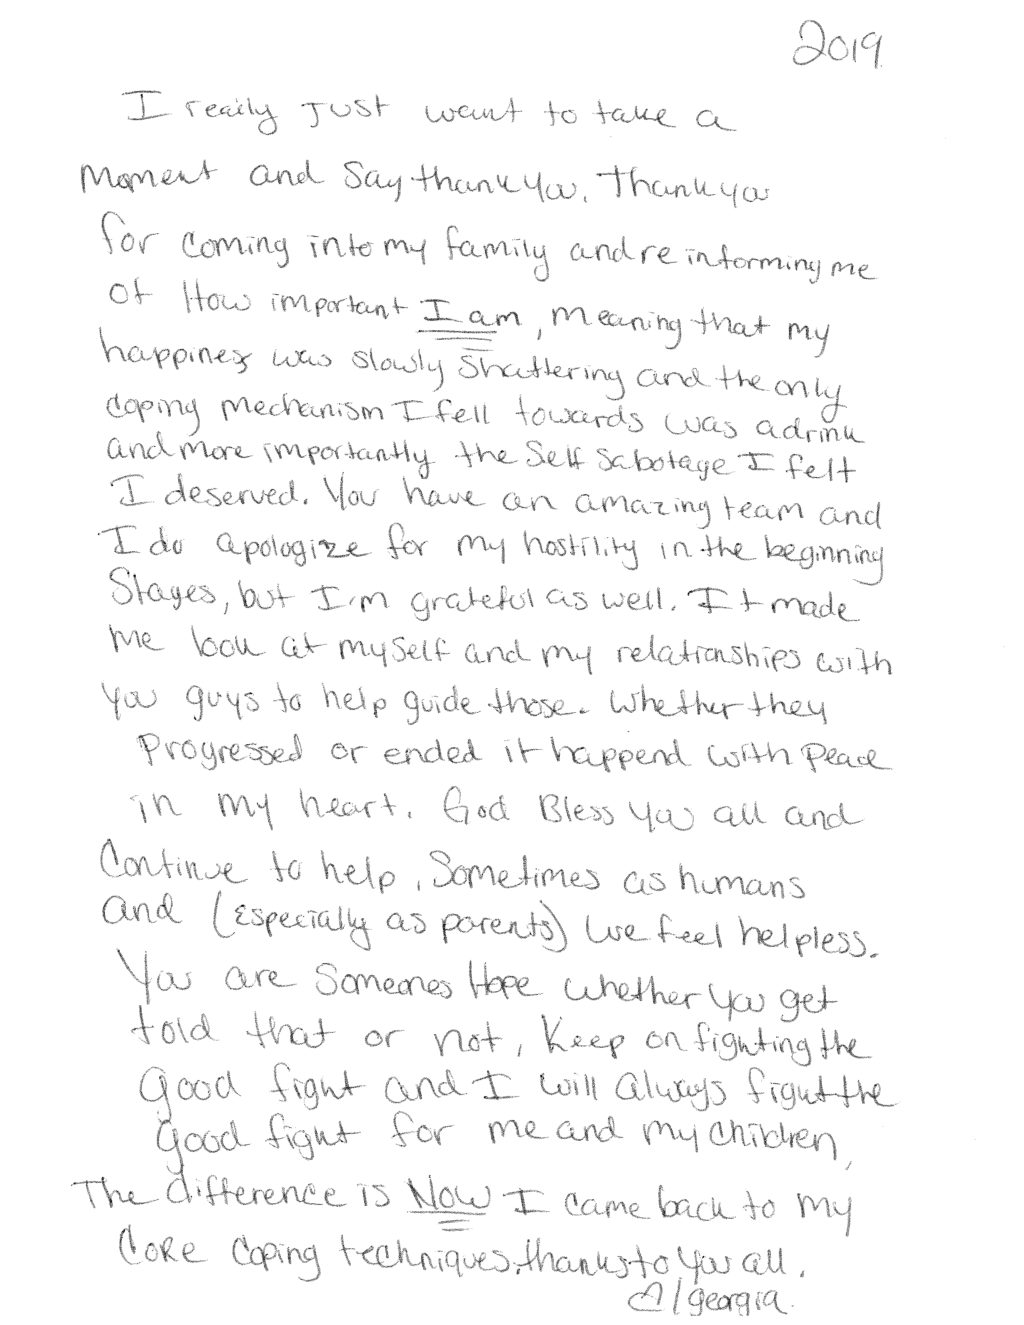 2019
I really Just want to take a
Moment and Say thank you. Thank you
for coming into my family and re informing me
of How important I am, meaning that my
happiness was slowly Shattering and the only
Coping Mechanism I fell towards was a drink
and more importantly the Self Sabotage I felt
I deserved. You have an amazing team and
I do apologize for my hostility in the beginning
Stages, but I'm grateful as well. It made
me look at myself and my relationships with
you guys to help guide those. Whether they
Progressed or ended it happend with Peace
in my heart. God Bless You all and
Continue to help. Sometimes as humans
and (especially as parents) we feel helpless.
You are Someones Hope whether you get
told that or not, Keep on fighting the
Good fight and I will always fight the
good fight for me and my children,
The difference is Now I came back to my
Core Coping techniques, thanks to you all.
♡/georgia.